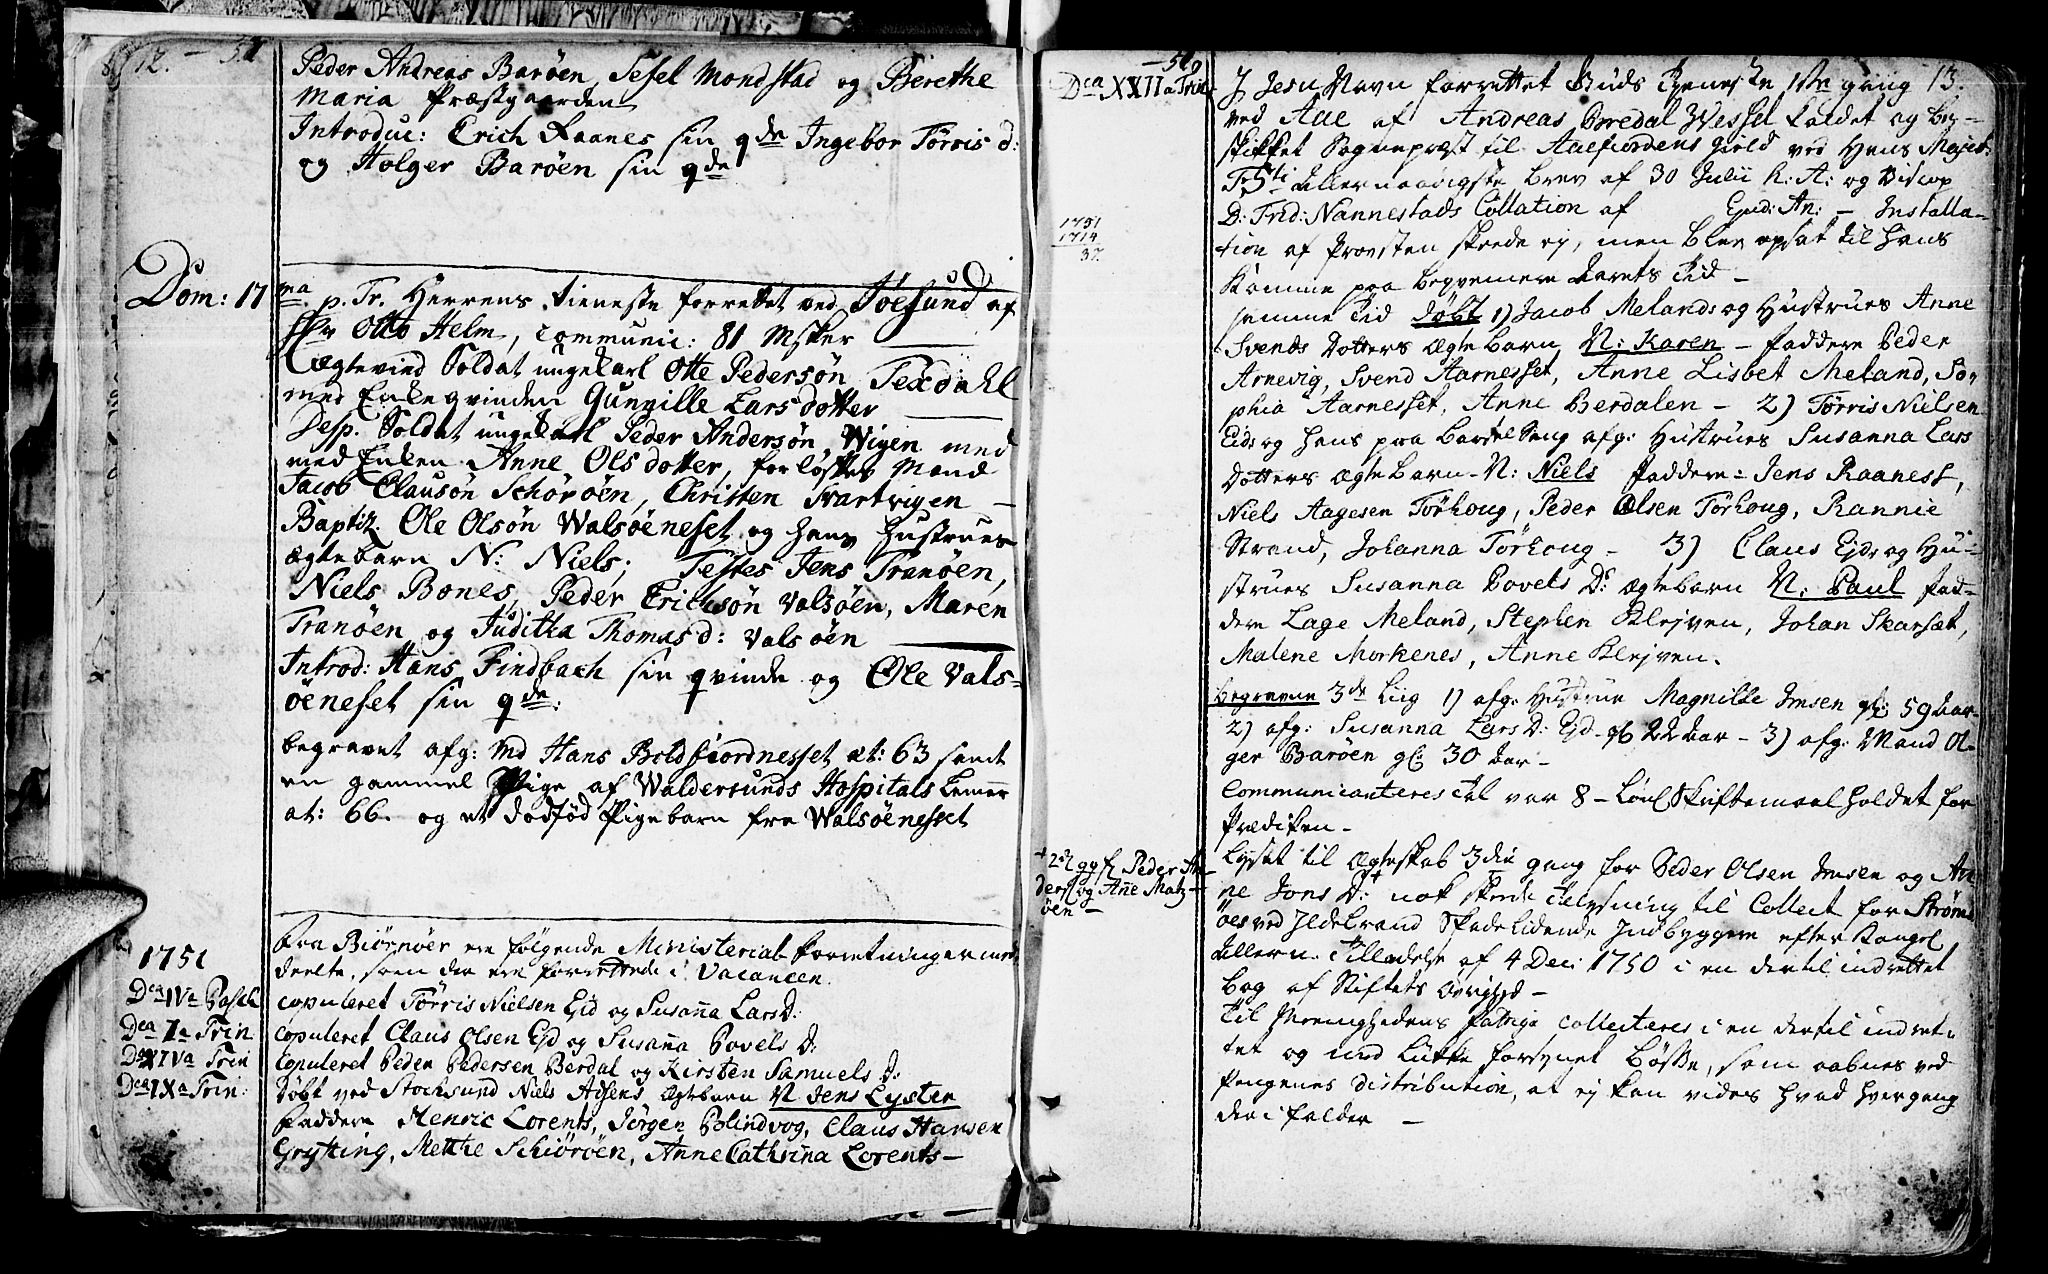 12. — 51
Peder Andreas Barøen, Sesel Mondstad og Berethe
Maria Præstgaarden
Introduc: Erich Raanes sin qde Ingebor Tørris d:
og Holger Barøen sin qde
Dom: 17 ma p. Tr. Herrens tieneste forrettet ved Jøesund af
Hr Otto Helm, communic: 81 Msker
Ægtevied Soldat ungekarl Otte Pedersøn Texdahl
med Enkeqvinden Gunnille Larsdotter
Desp. Soldat ungekarl Peder Andersøn Wigen med
med Enken Anne Olsdotter, forløftes Mænd
Jacob Clausøn Schørøen, Christen Svartvigen —
Baptiz. Ole Olsøn Walsøeneset og hans hustrues
ægtebarn N: Niels; Testes Jens Tranøen,
Niels Bones, Peder Erichsøn Valsøen, Maren
Tranøen og Juditha Thomasd: Valsøen
Introd: Hans Findbach sin qvinde og Ole Vals=
øeneset sin qde:
begravet afg: Md Hans Boldfiordnesset æt: 63 samt
en gammel Pige af Waldersunds Hospitals Lemer
æt: 66. og et dødfød Pigebarn fra Walsøenesset
1751
fra Biørnøer ere følgende Ministerial-forretninger med
deelte, som der ere forrettede i Vacancen.
Dca IVa Pasch copuleret Tørris Nielsen Eid og Susanna LarsD:
Dca Ia Trin copuleret Claus Olsen Ejd og Susanna Povels D:
Dca XIVa Trin Copuleret Peder Pedersen Berdal og Kirsten Samuels D:
Dca IXa Trin: Døbt ved Stochsund Niels Ægtebarn N Jens Lysten
Faddere Henric Lorents, Jørgen Blindvog, Claus Hansen
Grytting, Metthe Schiørøen, Anne Cathrina Lorents—
13.
Dca XXII a Trin J Jesu Navn forrettet Guds Tieneste 1ste gang
ved Aae af Andreas Bredal Wessel kaldet og be=
skikket Sognepræst til Aaefiordens gield ved Hans Majest:
Fr: 5ti Allernaadigste brev af 30 Julii h: A: og Biscop
D: Frid: Nannestads Collation af Ejud: An: — Installa=
tion af Provsten skeede ej, men blev opsat til hans
komme paa beqvemmere Aarets Tid —
1751
1714
37.
samme Tid Døbt 1) Jacob Melands og Hustrues Anne
Svends Dotters ægte barn N: Karen — faddere Peder
Arnevig, Svend Aarnesset, Anne Lisbet Meland, So=
phia Aarnesset, Anne Berdalen — 2) Tørris Nielsen
Eids og hans paa barsel Seng afg: Hustrues Susanna Lars
Dotters ægte barn N: Niels faddere: Jens Raaness,
Niels Aagesen Tørhoug, Peder Olsen Tørhoug, Rannie
Strand, Johanna Tørhoug — 3) Claus Ejds og Hu=
strues Susanna Povels D: ægtebarn N: Paul fad=
dere Lage Meland, Stephen Klejven, Johan Skarsæt,
Malene Morkenes, Anne Klejven.
begravne 3de Liig 1) afg: Hustrue Magnille Imsen gl: 59 aar
2) afg: Susanna Lars D: Ejd gl: 22 aar — 3) afg: Mand Ol=
ger Barøen gl: 30 Aar —
Communicanteres Tal var 8 — Løn Skriftemaal holdet for
Prædiken —
Lyset til Ægteskab 3die gang for Peder Olsen Imsen og An
ne Jons D: + nok skeede Tilysning til Collect for Strøms
øes ved Ildebrand Skadelidende Indbyggere efter Kongel
Allern: Tilladelse af 4 Dec: 1750 i en dertil indrettet
bog af Stiftets øvrighed —
+ 2den gg f Peder An
ders og Anne Matz
øen —
til Menighedens fattige collecteres i en dertil indret=
tet og med Lukke forsynet bøsse, som aabnes ved
Pengenes distribution, at ej kan vides hvad hver gang
deri falder —